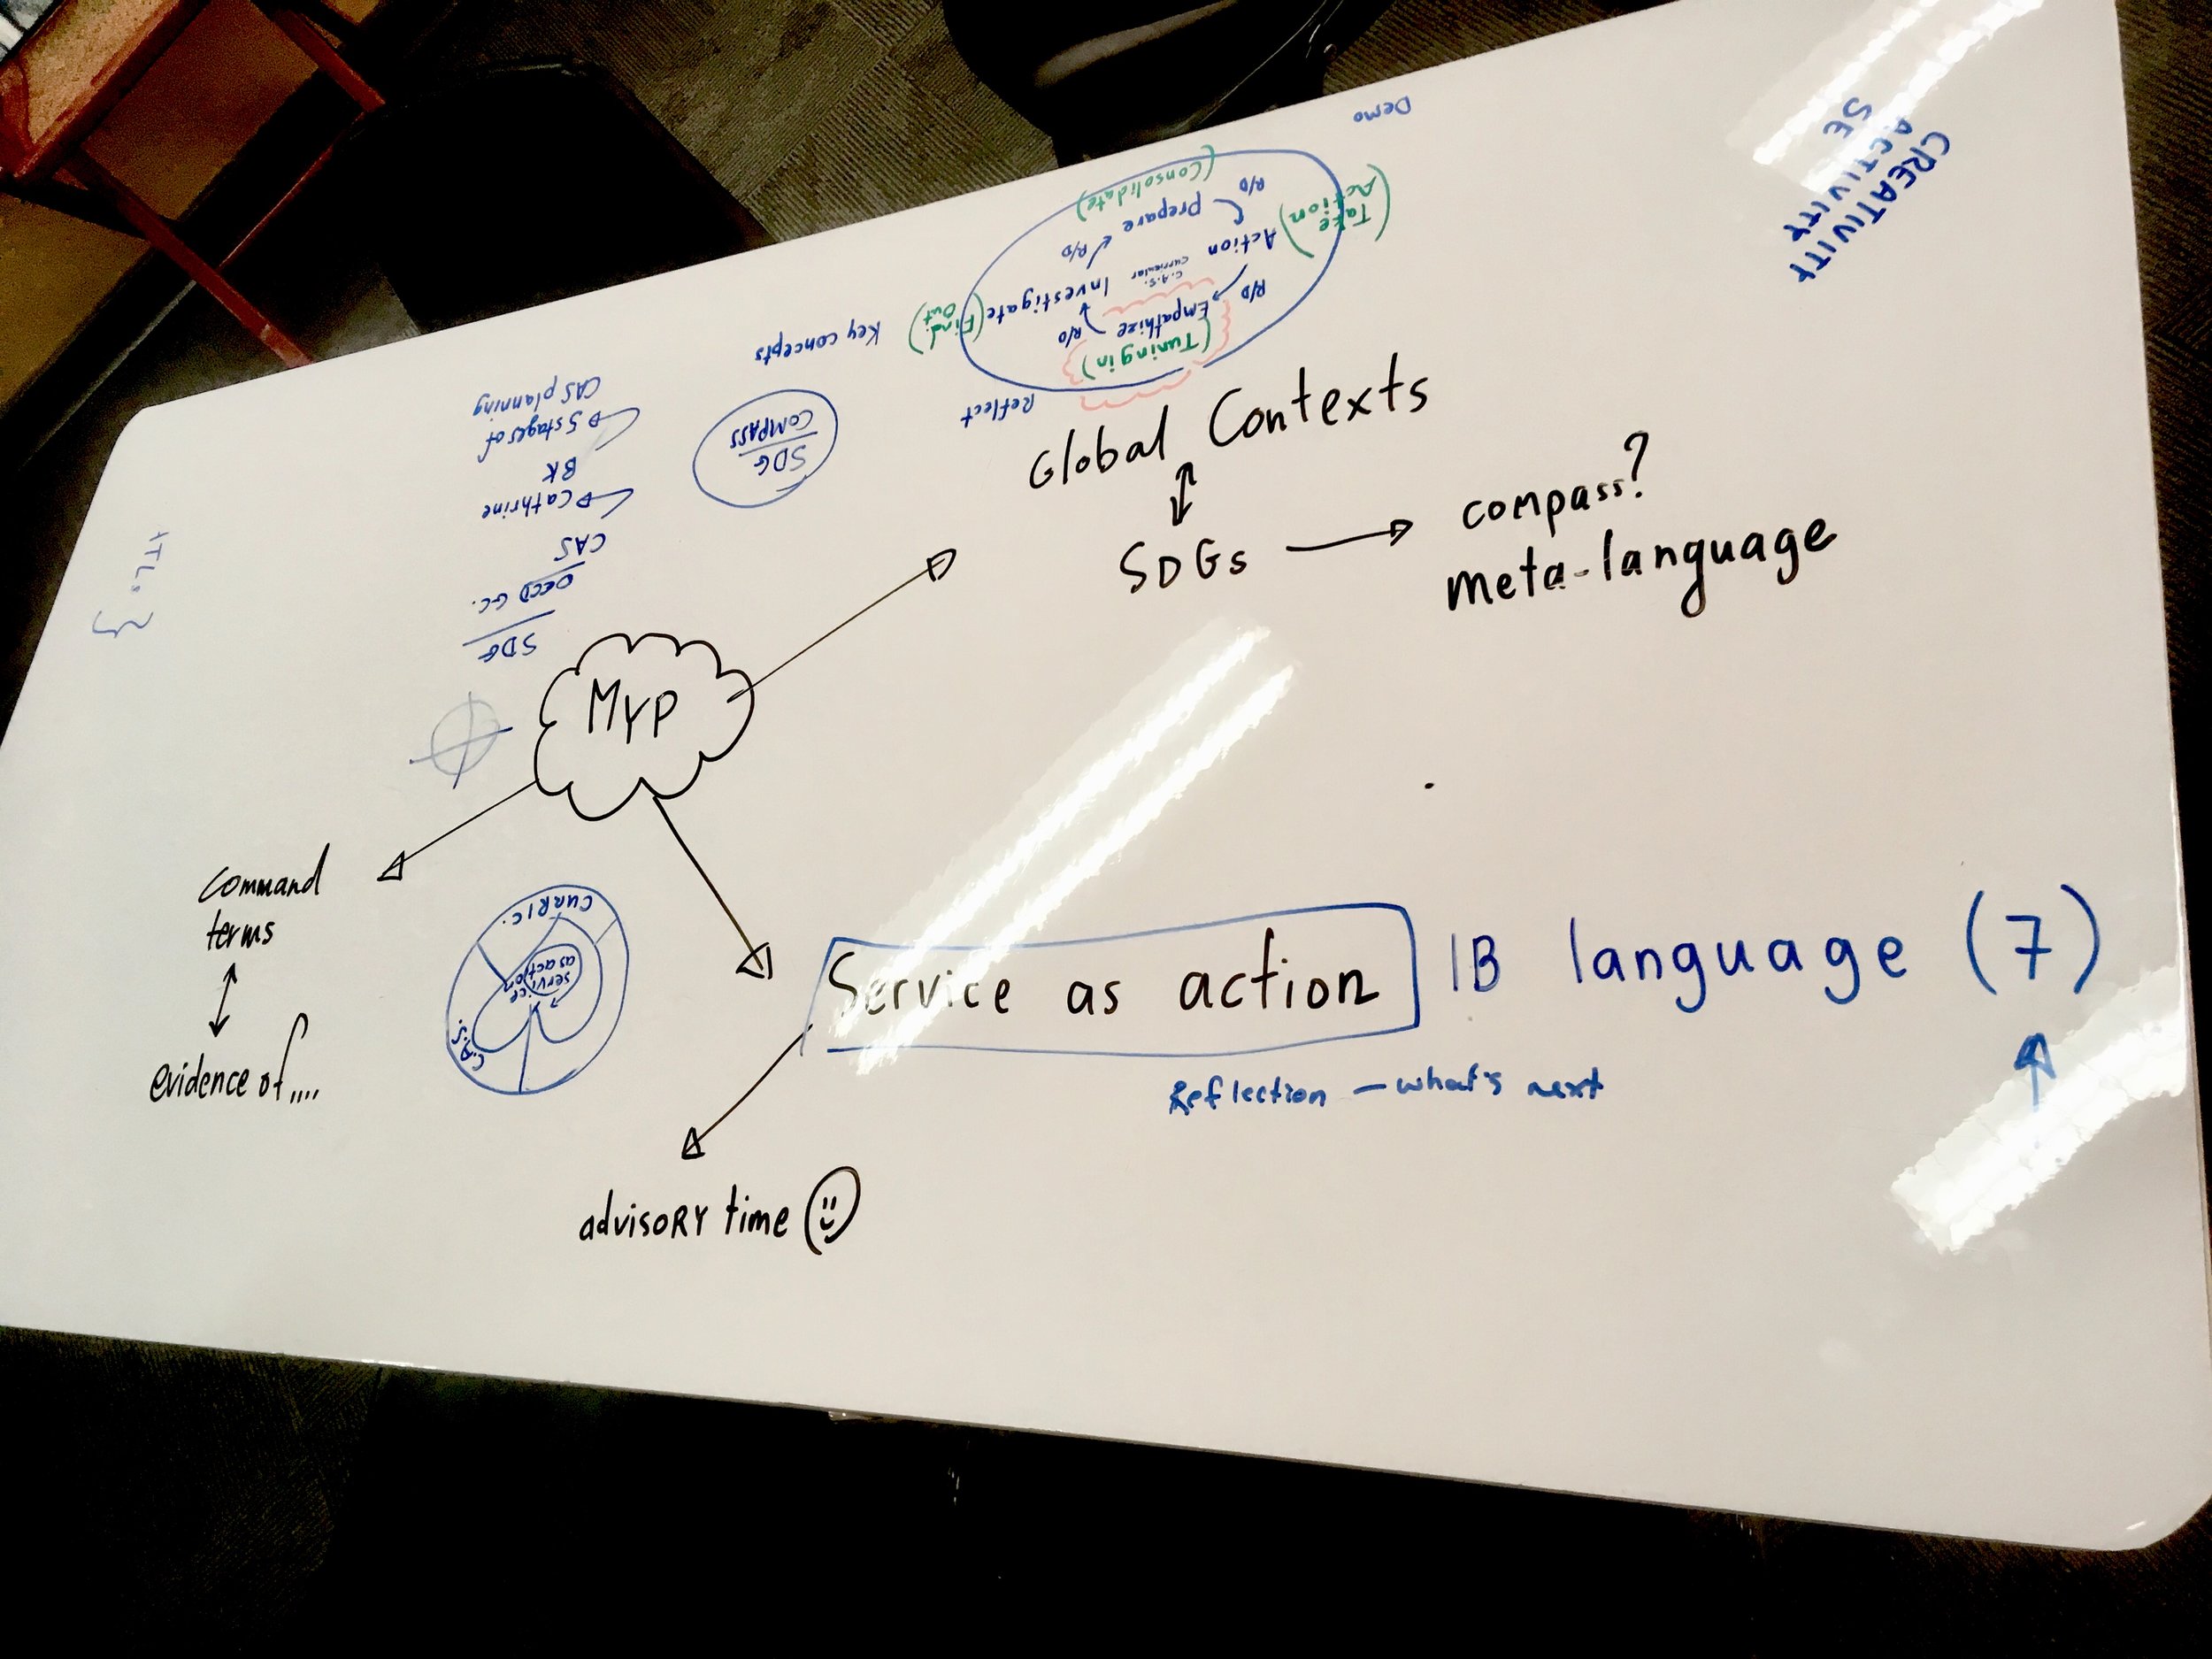 Global Contexts
SDGs
compass?
meta-language
MYP
Command
terms
evidence of....
Service as action
IB language (7)
Reflection — what's next
advisory time
CREATIVITY
ACTIVITY
SE
Demo
(Take
Action)
(Consolidate)
R/D
Prepare
R/D
Action
C.A.S.
curricular
Investigate
(Find
Out)
R/D
Empathize
R/D
(Tuning in)
Reflect
Key concepts
SDG
COMPASS
SDG
OECD G.C.
CAS
Cathrine
BK
5 stages of
CAS planning
CURRIC.
service
as action